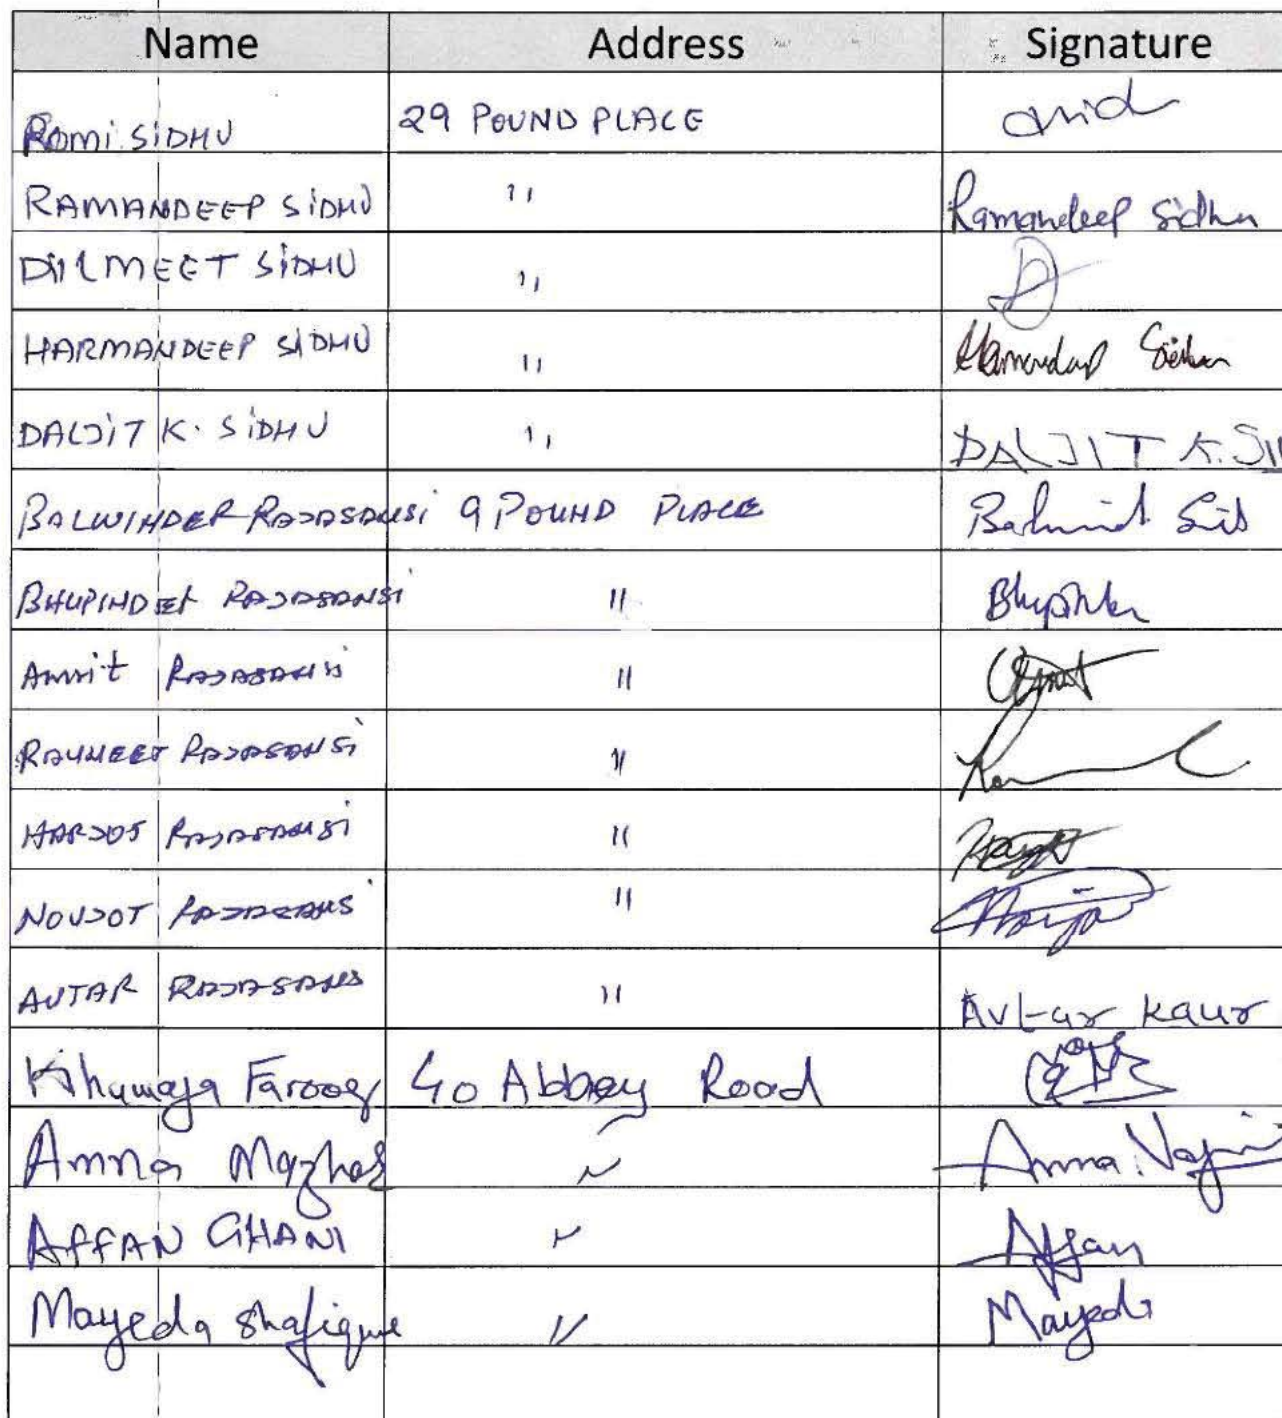 Name Address Signature
Romi SiDHU 29 POUND PLACE
RAMANDEEP SiDHU " Ramandeep Sidhu
DilMEET SiDHU "
HARMANDEEP SiDHU "
DALJiT K. SiDHU " DALJIT K. SI
BALWINDER RAJASANSi 9 POUND PLACE
BHUPINDER RAJASANSI " Bhupinder
Amrit RAJASANSi "
RAVNEET RAJASANSi "
HARJOT RAJASANSi "
NOVJOT RAJASANS "
AVTAR RAJASANS " Avtar Kaur
Khuwaja Farooq 40 Abbey Road
Amna Mazhar " Amna
AFFAN GHANI " Affan
Mayeda Shafique " Mayeda